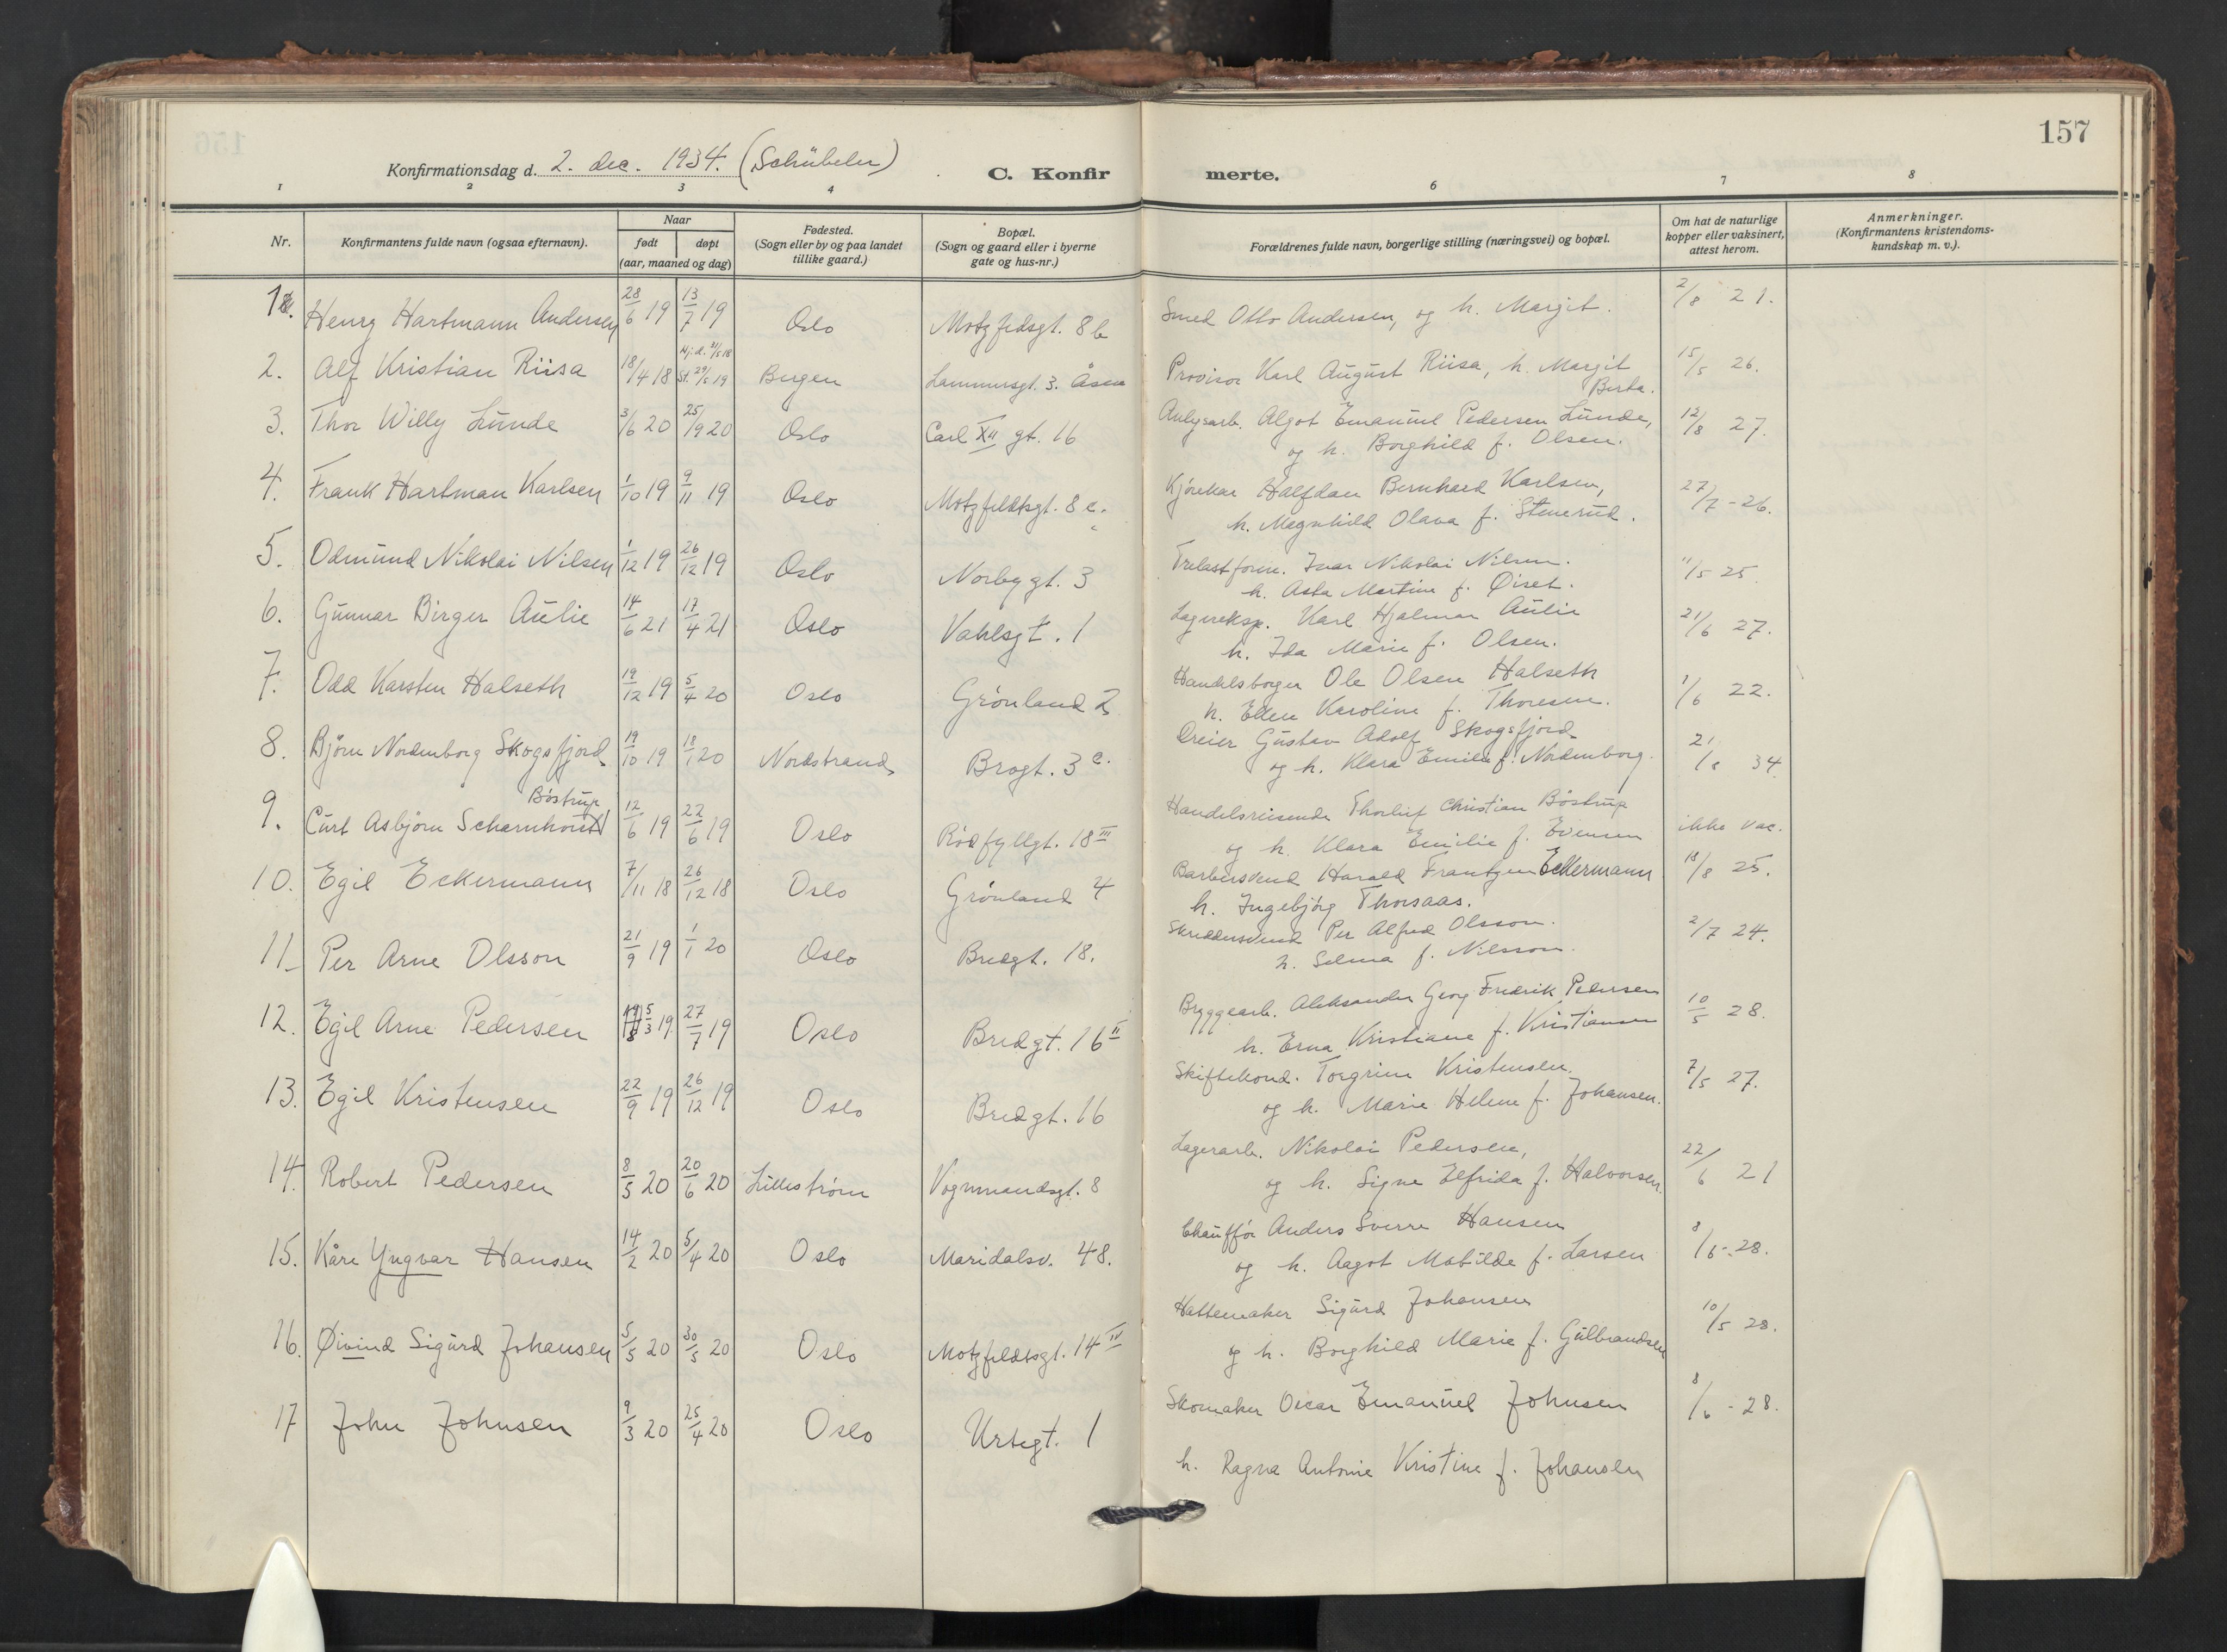 157
Konfirmationsdag d. 2. dec. 1934. (Schübeler)
C. Konfirmerte.
1 2 3 4 6 7 8
Nr.
Konfirmantens fulde navn (ogsaa efternavn).
Naar
født døpt
(aar, maaned og dag)
Fødested.
(Sogn eller by og paa landet
tillike gaard.)
Bopæl.
(Sogn og gaard eller i byerne
gate og hus-nr.)
Forældrenes fulde navn, borgerlige stilling (næringsvei) og bopæl.
Om hat de naturlige
kopper eller vaksinert,
attest herom.
Anmerkninger.
(Konfirmantens kristendoms-
kundskap m. v.).
1. Henry Hartmann Andersen 28/6 19 13/7 19 Oslo Motzfedsgt. 8 b Smed Otto Andersen, og h. Margit. 2/8 21.
2. Alf Kristian Riisa 18/4 18 Hj. d. 21/5 18 St. 29/5 19 Bergen Lammersgt. 3. Åsen Provisor Karl August Riisa, h. Margit 15/5 26.
Berta.
3. Thor Willy Lunde 3/6 20 25/9 20 Oslo Carl XII gt. 16 Anlegsarb. Algot Emanuel Pedersen Lunde, 12/8 27.
og h. Borghild f. Olsen.
4. Frank Hartman Karlsen 1/10 19 9/11 19 Oslo Motzfeldtsgt. 8 c. Kjørekar Halfdan Bernhard Karlsen, 27/7 - 26.
h. Magnhild Olava f. Stenerud.
5. Odmund Nikolai Nilsen 1/12 19 26/12 19 Oslo Norbygt. 3 Trelastform. Ivar Nikolai Nilsen. 11/5 25.
h. Asta Martine f. Øiset.
6. Gunnar Birger Aulie 14/6 21 17/4 21 Oslo Vahlsgt. 1 Lagereksp. Karl Hjalmar Aulie 21/6 27.
h. Ida Marie f. Olsen.
7. Odd Karsten Halseth 19/12 19 5/4 20 Oslo Grønland 2 Handelsborger Ole Olsen Halseth 1/6 22.
h. Ellen Karoline f. Thoresen.
8. Bjørn Nordenborg Skogsfjord 19/10 19 18/1 20 Nordstrand Brogt. 3 c. Dreier Gustav Adolf Skogsfjord 21/8 34
og h. Klara Emilie f. Nordenborg.
Böstrup
9. Curt Asbjørn Scharnhorst 12/6 19 22/6 19 Oslo Rödfyllgt. 18 III Handelsreisende Thorleif Christian Böstrup ikke vac.
og h. Klara Emilie f. Evensen
10. Egil Eckermann 7/11 18 26/12 18 Oslo Grønland 4 Barbersvend Harald Frantzen Eckermann 18/8 25.
h. Ingebjörg Thorsaas.
11. Per Arne Olsson 21/9 19 1/1 20 Oslo Bredgt. 18. Skreddersvend Per Alfred Olsson. 2/7 24.
h. Selma f. Nilsson.
12. Egil Arne Pedersen 5/3 19 27/7 19 Oslo Bredgt. 16 II Bryggearb. Aleksander Georg Fredrik Pedersen 10/5 28.
h. Erna Kristiane f. Kristiansen
13. Egil Kristensen 22/9 19 26/12 19 Oslo Bredgt. 16 Skiftekond. Torgrim Kristensen. 7/5 27.
og h. Marie Helene f. Johansen.
14. Robert Pedersen 8/5 20 20/6 20 Lilleström Vognmandsgt. 8 Lagerarb. Nikolai Pedersen, 22/6 21
og h. Signe Elfrida f. Halvorsen.
15. Kåre Yngvar Hansen 14/2 20 5/4 20 Oslo Maridalsv. 48. Chauffør Anders Sverre Hansen 8/6 - 28.
og h. Aagot Matilde f. Larsen
16. Øivind Sigurd Johansen 5/5 20 30/5 20 Oslo Motzfeldtsgt. 14 IV Hattemaker Sigurd Johansen 10/5 28.
og h. Borghild Marie f. Gulbrandsen
17 John Johnsen 9/3 20 25/4 20 Oslo Urtegt. 1 Skomaker Oscar Emanuel Johnsen 8/6 - 28.
h. Ragna Antonie Kristine f. Johansen